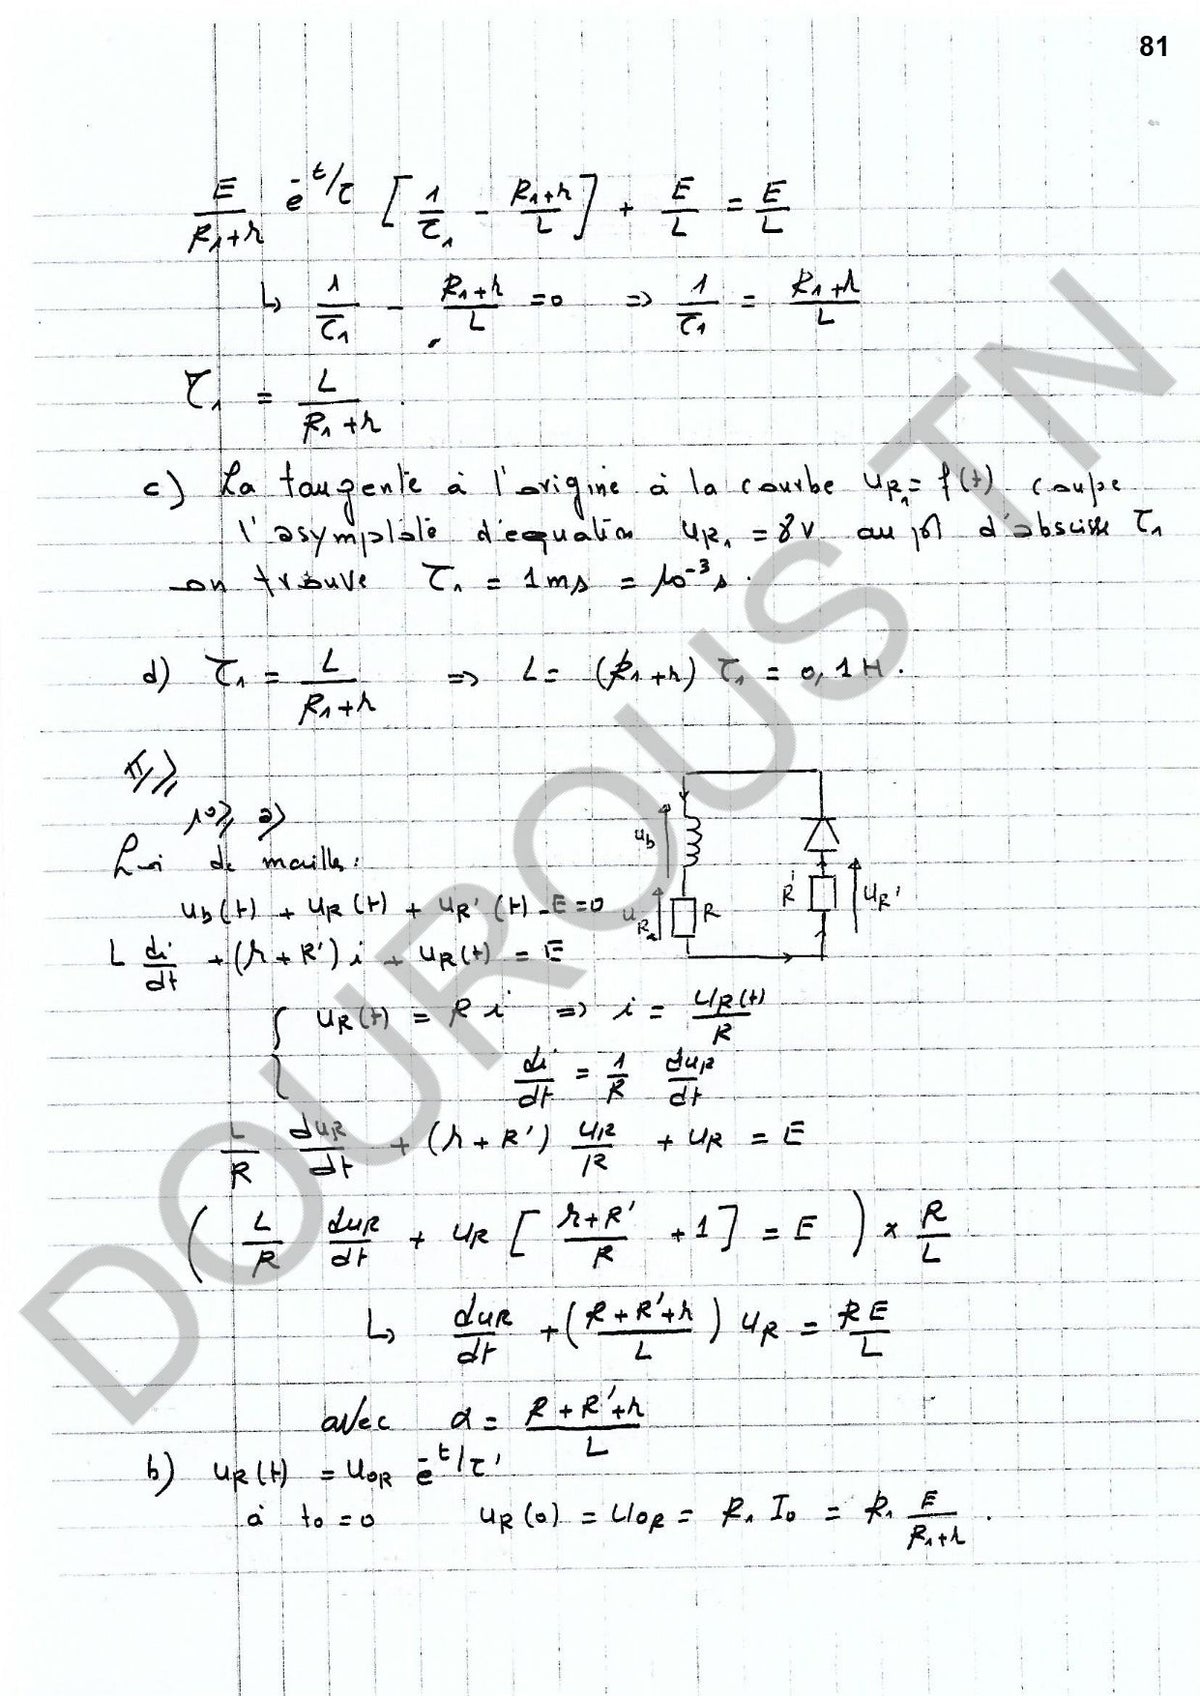 81
E/(R₁+r) e^(-t/τ) [1/τ₁ - (R₁+r)/L] + E/L = E/L
↳ 1/τ₁ - (R₁+r)/L = 0 => 1/τ₁ = (R₁+r)/L
τ₁ = L/(R₁+r).
c) La tangente à l'origine à la courbe uR₁ = f(t) coupe
l'asymptote d'equation uR₁ = 8V au pt d'abscisse τ₁
on trouve τ₁ = 1ms = 10⁻³s.
d) τ₁ = L/(R₁+r) => L = (R₁+r) τ₁ = 0,1H.
II/
1°/ a)
Loi de mailles:
ub(t) + uR(t) + uR'(t) - E = 0
L di/dt + (r+R')i + uR(t) = E
ub
uR₂
R
R'
uR'
{ uR(t) = R i => i = uR(t)/R
di/dt = 1/R duR/dt
L/R duR/dt + (r+R') uR/R + uR = E
( L/R duR/dt + uR [ (r+R')/R + 1 ] = E ) × R/L
↳ duR/dt + ( (R+R'+r)/L ) uR = RE/L
avec α = (R+R'+r)/L
b) uR(t) = U0R e^(-t/τ')
à t0 = 0 uR(0) = U0R = R₁ I0 = R₁ E/(R₁+r).
DOUROUS TN